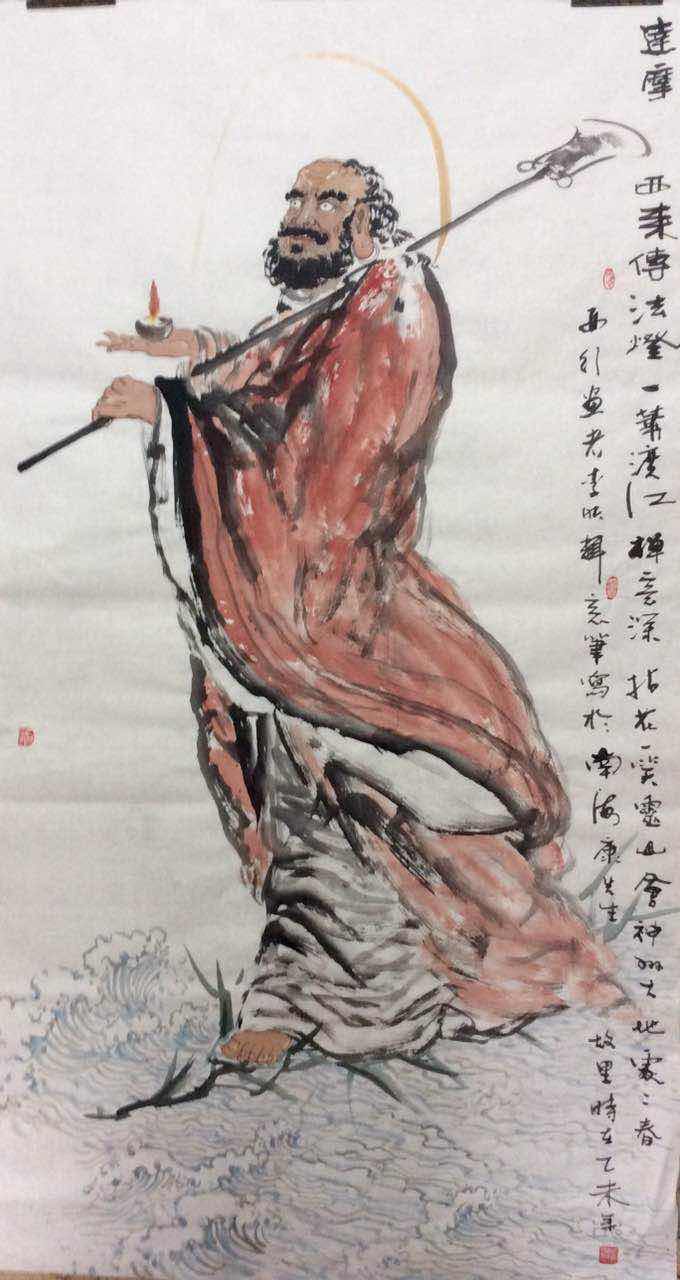 達摩
西來傳法燈一葦渡江禪意深拈花一笑靈山會神州大地處々春
畫者李輝意筆寫於南海康先生故里時在乙未年